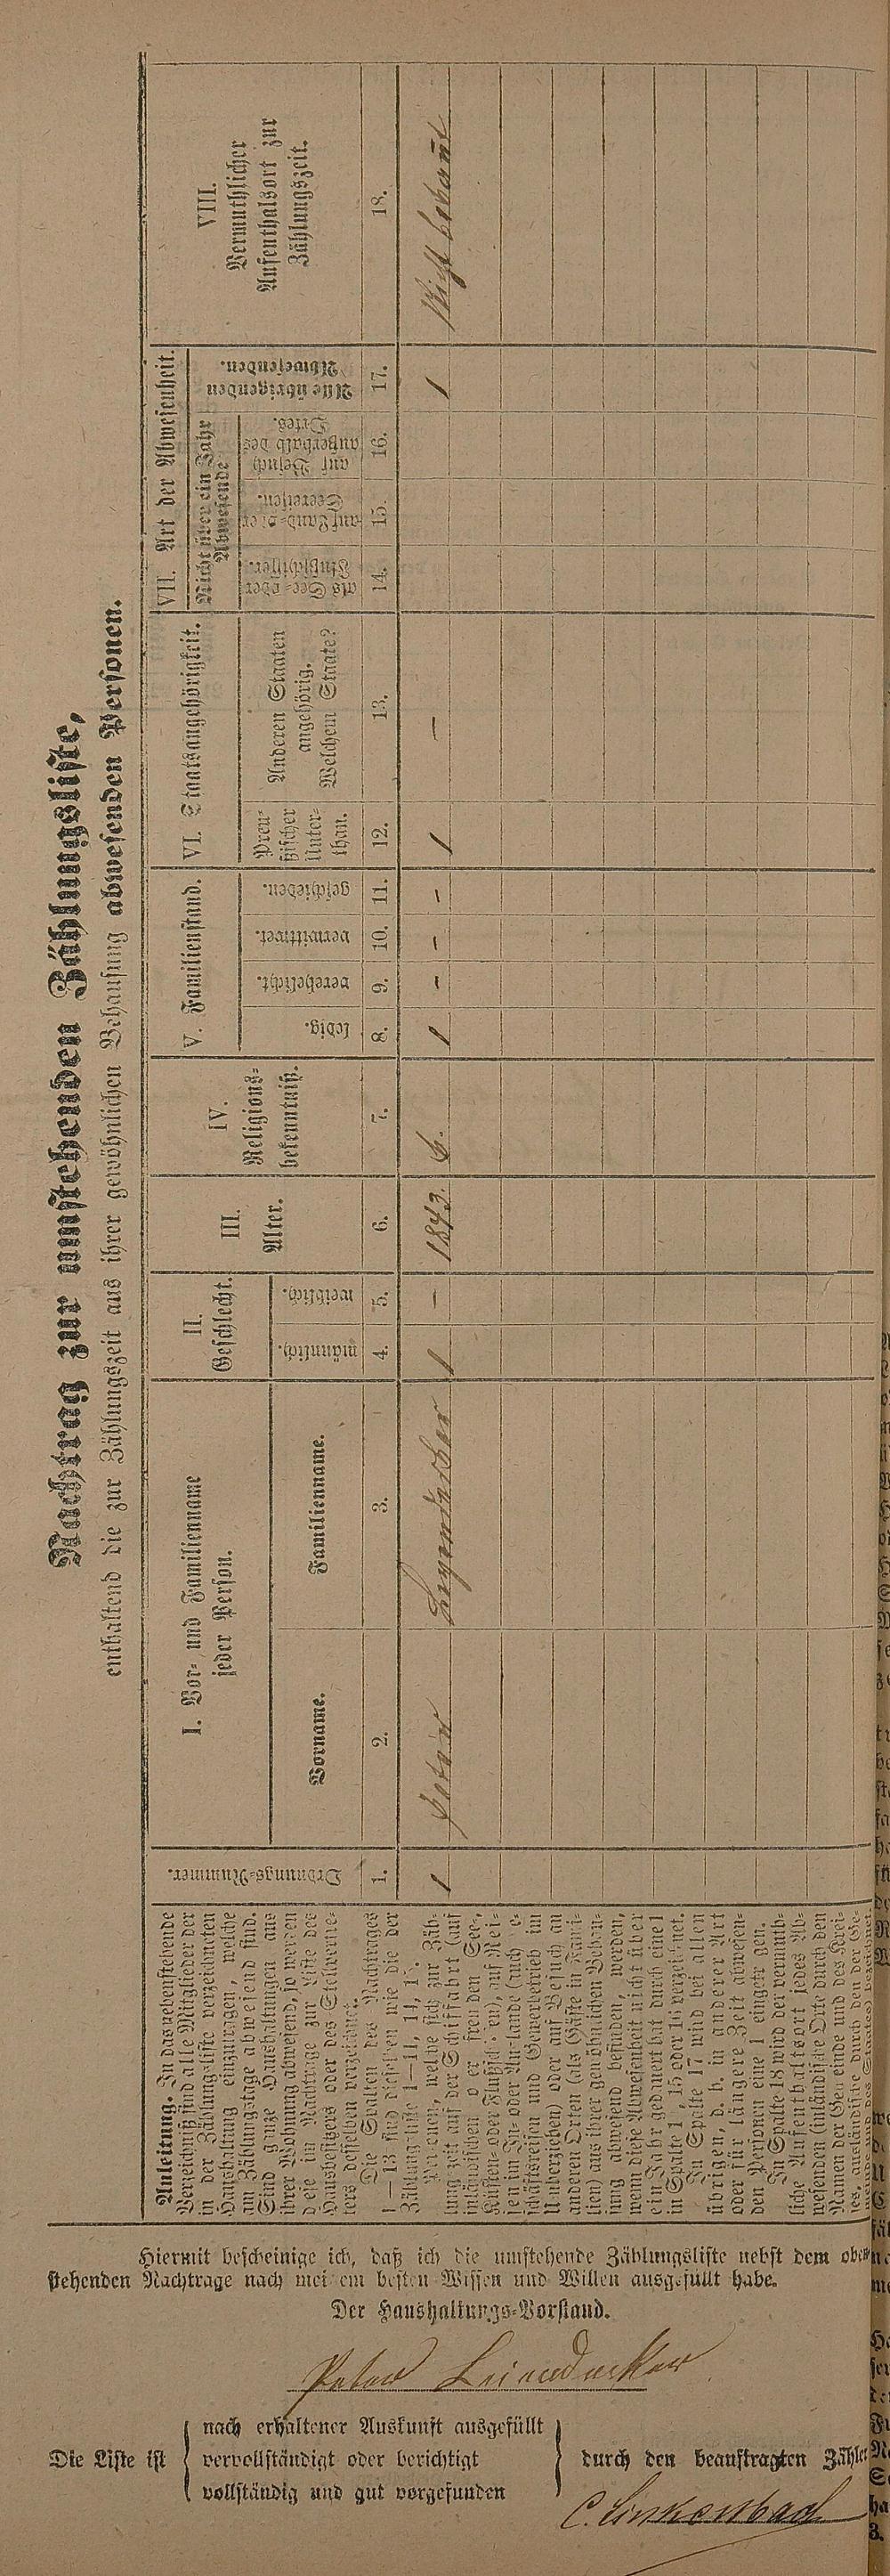 Nachtrag zur umstehenden Zählungsliste,
enthaltend die zur Zählungszeit aus ihrer gewöhnlichen Behausung abwesenden Personen.
Anleitung. In das nebenstehende
Verzeichniß sind alle Mitglieder der
in der Zählungsliste verzeichneten
Haushaltung einzutragen, welche
am Zählungstage abwesend sind.
Sind ganze Haushaltungen aus
ihrer Wohnung abwesend, so werden
diese im Nachtrage zur Liste des
Hausbesitzers oder des Stellvertre-
ters desselben verzeichnet.
Die Spalten des Nachtrages
1—13 sind dieselben wie die der
Zählungsliste 1—11,
Personen, welche sich zur Zäh-
lungszeit auf der Schifffahrt (auf
inländischen oder fremden See-,
Küsten- oder Flußschiffen), auf Rei-
sen im In- oder Auslande (auch Ge-
schäftsreisen und Gewerbetrieb im
Umherziehen) oder auf Besuch an
anderen Orten (als Gäste in Fami-
lien) aus ihrer gewöhnlichen Behau-
sung abwesend befinden, werden,
wenn diese Abwesenheit nicht über
ein Jahr gedauert hat durch eine 1
in Spalte 14, 15 oder 16 verzeichnet.
In Spalte 17 wird bei allen
übrigen, d. h. in anderer Art
oder für längere Zeit abwesen-
den Personen eine 1 eingetragen.
In Spalte 18 wird der vermuth-
liche Aufenthaltsort jedes Ab-
wesenden (inländische Orte durch den
Namen der Gemeinde und des Krei-
ses, ausländische durch den der Ge-
meinde und des Staates) bezeichnet.
Ordnungs-Nummer.
I. Vor- und Familienname
jeder Person.
Vorname.
Familienname.
II.
Geschlecht.
männlich.
weiblich.
III.
Alter.
IV.
Religions-
bekenntniß.
V. Familienstand.
ledig.
verehelicht.
verwittwet.
geschieden.
VI. Staatsangehörigkeit.
Preu-
ßischer
Unter-
than.
Anderen Staaten
angehörig.
Welchem Staate?
VII. Art der Abwesenheit.
Nicht über ein Jahr
Abwesende
als See- oder
Flußschiffer.
auf Land- oder
Seereisen.
auf Besuch
außerhalb des
Ortes.
Alle übrigen
Abwesenden.
VIII.
Vermuthlicher
Aufenthalsort zur
Zählungszeit.
1. 2. 3. 4. 5. 6. 7. 8. 9. 10. 11. 12. 13. 14. 15. 16. 17. 18.
1 Peter 1 – 1843. 1 – – – 1 – 1 Nicht bekannt
Hiermit bescheinige ich, daß ich die umstehende Zählungsliste nebst dem oben
stehenden Nachtrage nach meinem besten Wissen und Willen ausgefüllt habe.
Der Haushaltungs-Vorstand.
Peter Leiendecker
Die Liste ist
nach erhaltener Auskunft ausgefüllt
vervollständigt oder berichtigt
vollständig und gut vorgefunden
durch den beauftragten Zähler
C. Linkenbach